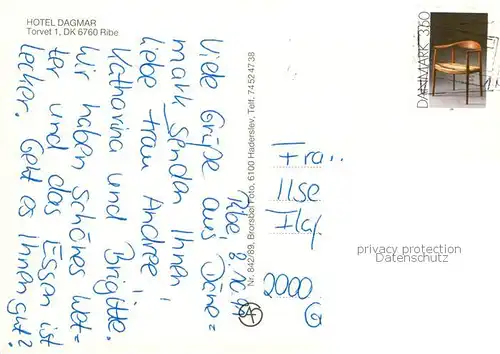 HOTEL DAGMAR
Torvet 1, DK 6760 Ribe
DANMARK 350
Nr. 842/89, Brorsbøl Foto, 6100 Haderslev, Telf. 74524738
Ribe
Viele Grüße aus Däne=
mark senden Ihnen,
liebe Frau Andree!
Katharina und Brigitte.
Wir haben schönes Wet=
ter und das Essen ist
lecker. Geht es Ihnen gut?
Frau
Ilse
2000
privacy protection
Datenschutz